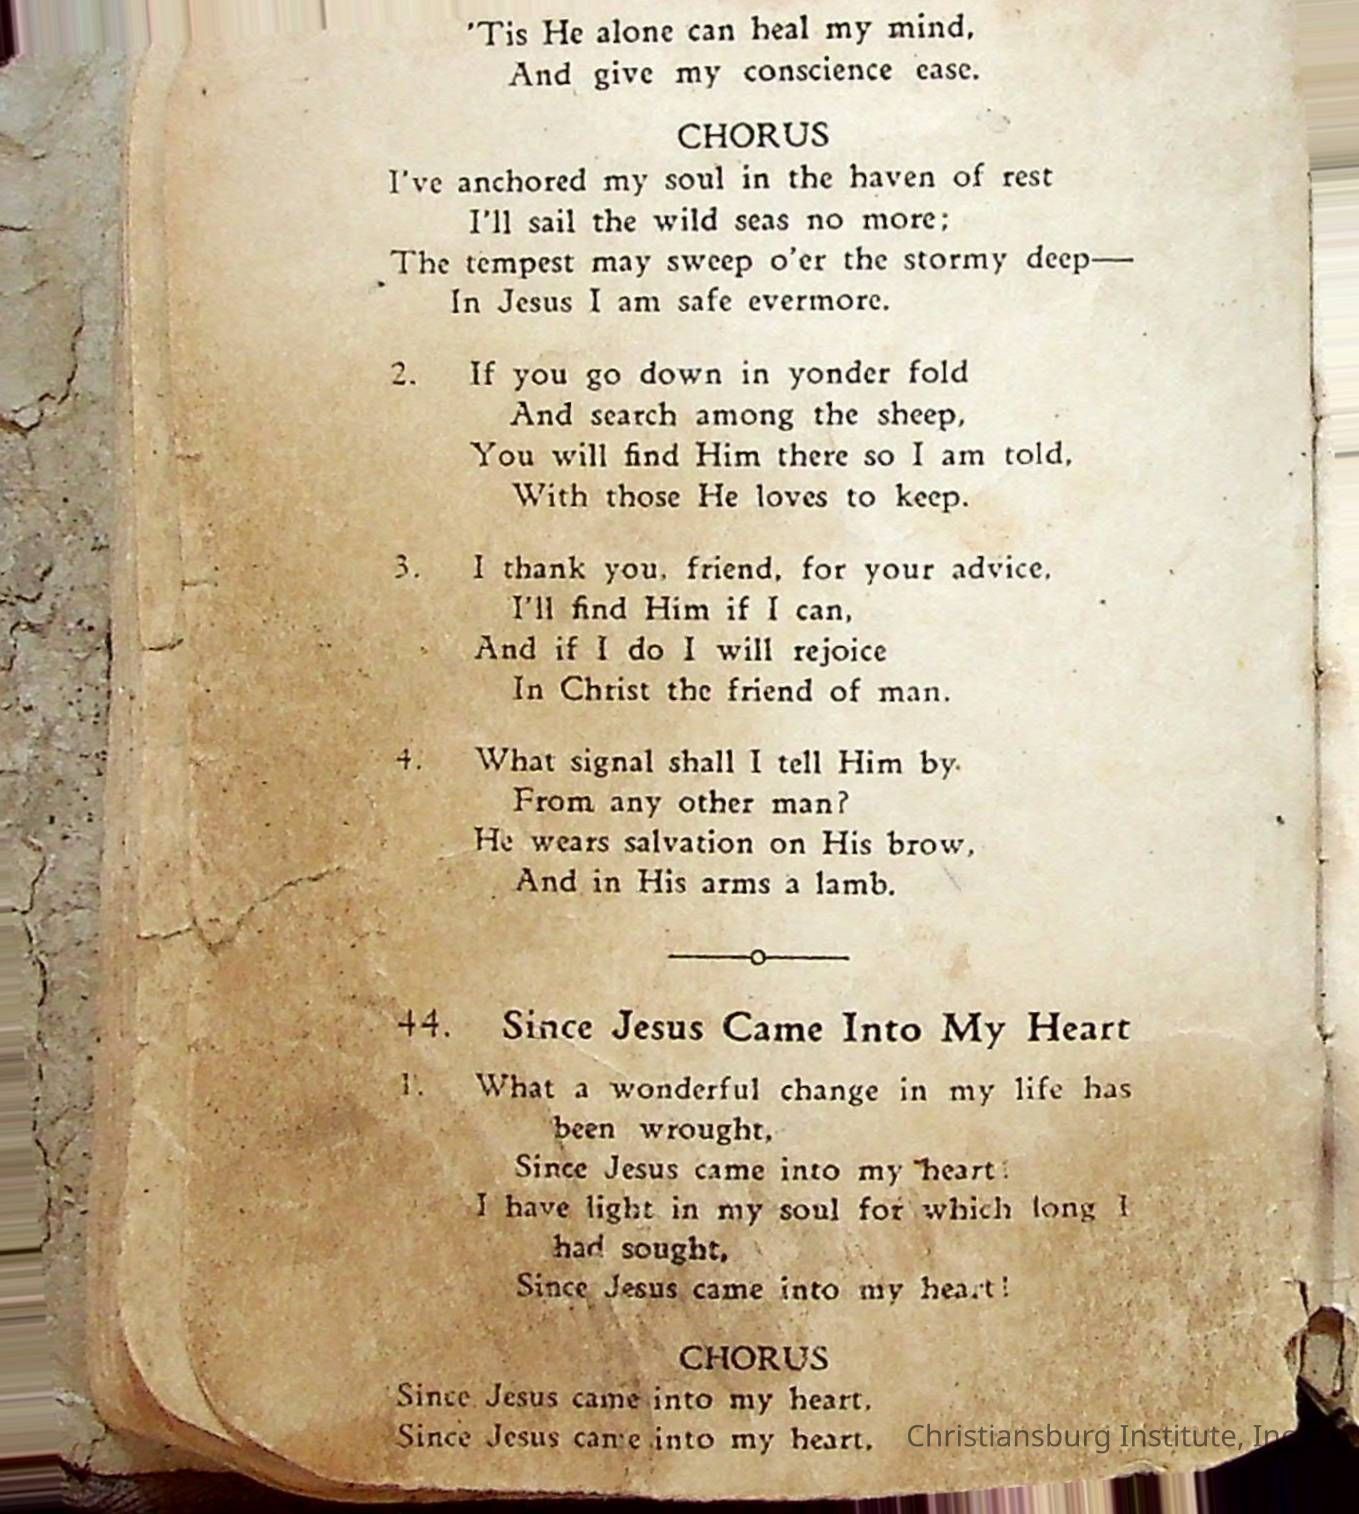 'Tis He alone can heal my mind,
And give my conscience ease.
CHORUS
I've anchored my soul in the haven of rest
I'll sail the wild seas no more;
The tempest may sweep o'er the stormy deep—
In Jesus I am safe evermore.
2. If you go down in yonder fold
And search among the sheep,
You will find Him there so I am told,
With those He loves to keep.
3. I thank you, friend, for your advice,
I'll find Him if I can,
And if I do I will rejoice
In Christ the friend of man.
4. What signal shall I tell Him by
From any other man?
He wears salvation on His brow,
And in His arms a lamb.
44. Since Jesus Came Into My Heart
1. What a wonderful change in my life has
been wrought,
Since Jesus came into my heart!
I have light in my soul for which long I
had sought,
Since Jesus came into my heart!
CHORUS
Since Jesus came into my heart,
Since Jesus came into my heart,
Christiansburg Institute, Inc